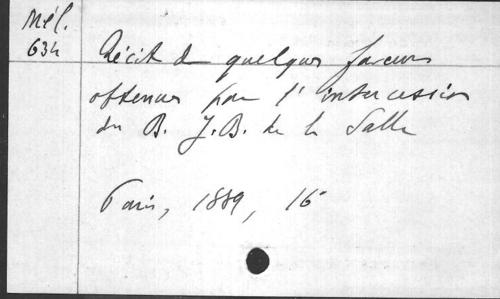 Mél.
634
Récit de quelques faveurs
obtenues par l'intercession
du B. J.B. de la Salle
Paris, 1889, 16°